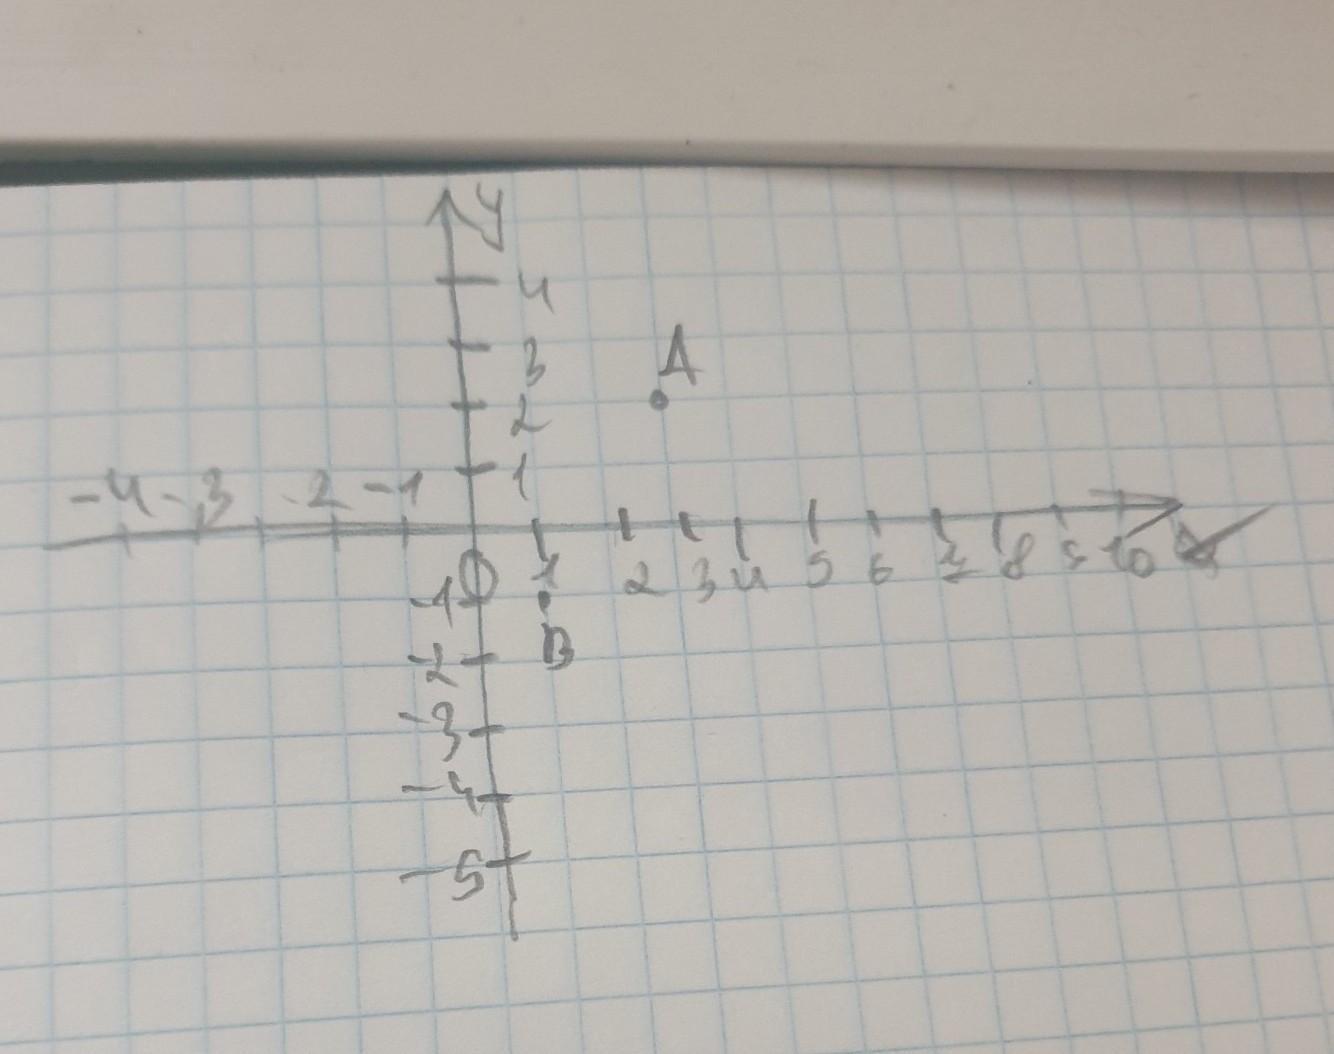 y
4
3
A
2
1
-4 -3 -2 -1
O 1 2 3 4 5 6 7 8 9 10 x
-1
B
-2
-3
-4
-5